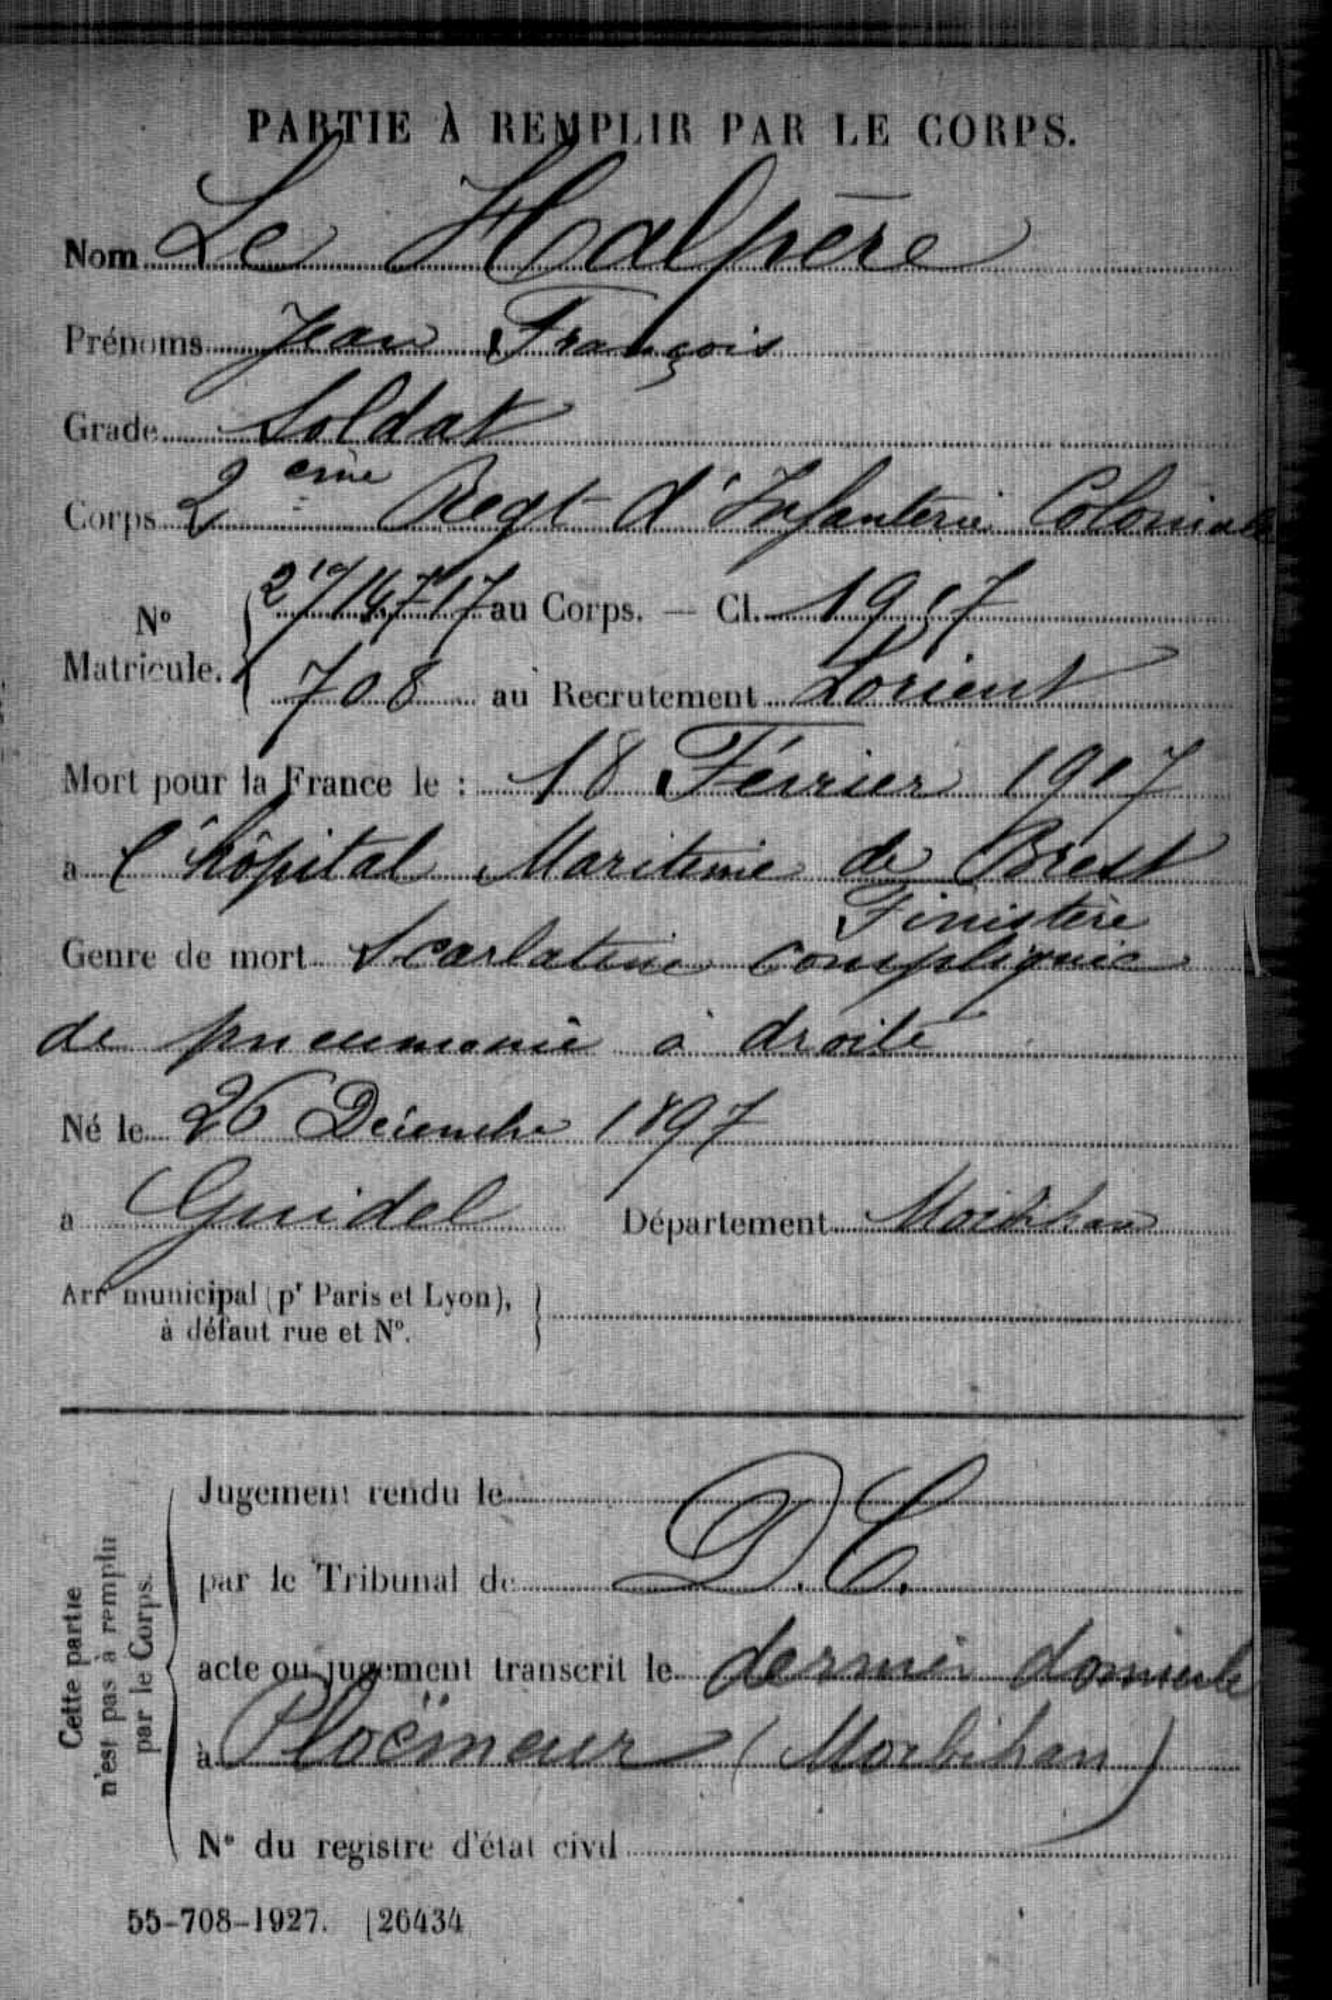 PARTIE À REMPLIR PAR LE CORPS.
Nom Le Halpère
Prénoms Jean François
Grade Soldat
Corps 2 ème Regt d'Infanterie Coloniale
N° Matricule. au Corps. — Cl. 1917
708 au Recrutement Lorient
Mort pour la France le : 18 Février 1917
a l'hôpital Maritime de Brest
Finistère
Genre de mort Scarlatine compliquée
de pneumonie à droite
Né le 26 Décembre 1897
a Guidel Département Morbihan
Arr municipal (pr Paris et Lyon),
à défaut rue et N°.
Cette partie
n'est pas à remplir
par le Corps.
Jugement rendu le
par le Tribunal de D.C.
acte ou jugement transcrit le dernier domicile
à Ploëmeur (Morbihan)
N° du registre d'état civil
55-708-1927. [26434